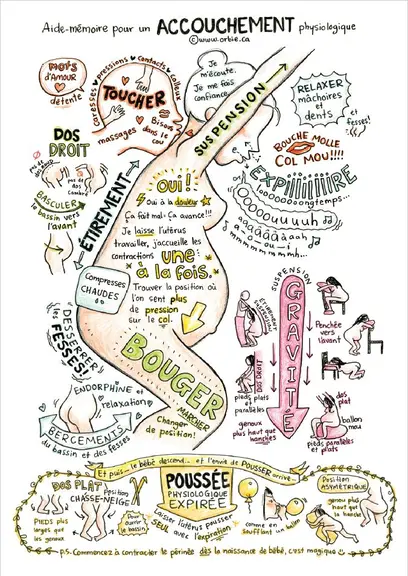 Aide-mémoire pour un ACCOUCHEMENT physiologique
©www.orbie.ca
MOTS
d'AMOUR
détente
caresses pressions contacts calleux
TOUCHER
massages
Bisous
dans le
cou
Je
m'écoute.
Je me fais
confiance.
SUSPENSION
RELAXER
mâchoires
et
dents
et
fesses!
DOS
DROIT
BOUCHE MOLLE
COL MOU!!!!
BASCULER
le bassin vers
l'avant
ÉTIREMENT
OUI!
Oui à la douleur
Ça fait mal. Ça avance!!!
Je laisse l'utérus
travailler, j'accueille les
contractions
une
à la fois.
Trouver la position où
l'on sent plus
de
pression
sur le col.
longtemps...
Compresses
CHAUDES
DESSERRER
les
FESSES!
BOUGER
MARCHER
Changer
de position!
ENDORPHINE et
relaxation
BERCEMENTS
du bassin et des fesses
SUSPENSION
GRAVITÉ
Penchée
vers
l'avant
DOS DROIT
pieds plats
et
parallèles
genoux
plus haut que
hanches
dos
plat
ballon
mou
pieds parallèles
et plats
Et puis... le bébé descend... et l'envie de POUSSER arrive...
DOS PLAT
Position
CHASSE-NEIGE
PIEDS plus
larges que
les genoux
Pour
ouvrir le
bassin
POUSSÉE
PHYSIOLOGIQUE
EXPIRÉE
Laisser l'utérus pousser
SEUL avec l'expiration
comme en
soufflant un ballon
Position
ASYMÉTRIQUE
genou plus
haut que
la hanche
P.S. Commencez à contracter le périnée dès la naissance de bébé, c'est magique